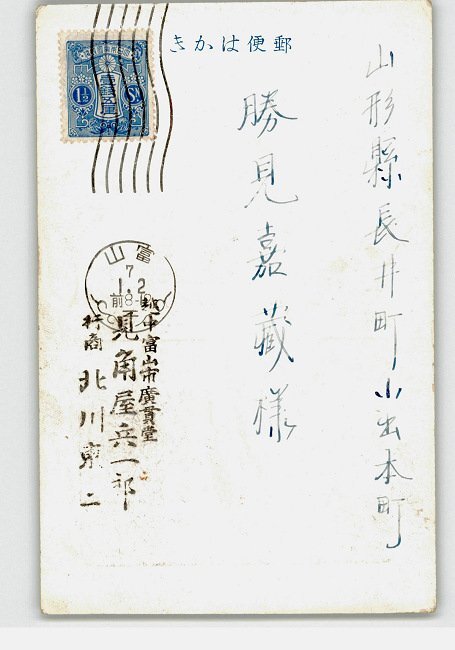 郵便はかき
山形縣長井町小出本町
勝見嘉藏様
1½ Sn
富山
7
1.2
前8-
越中富山市廣貫堂
見角屋兵一郎
行商 北川東二